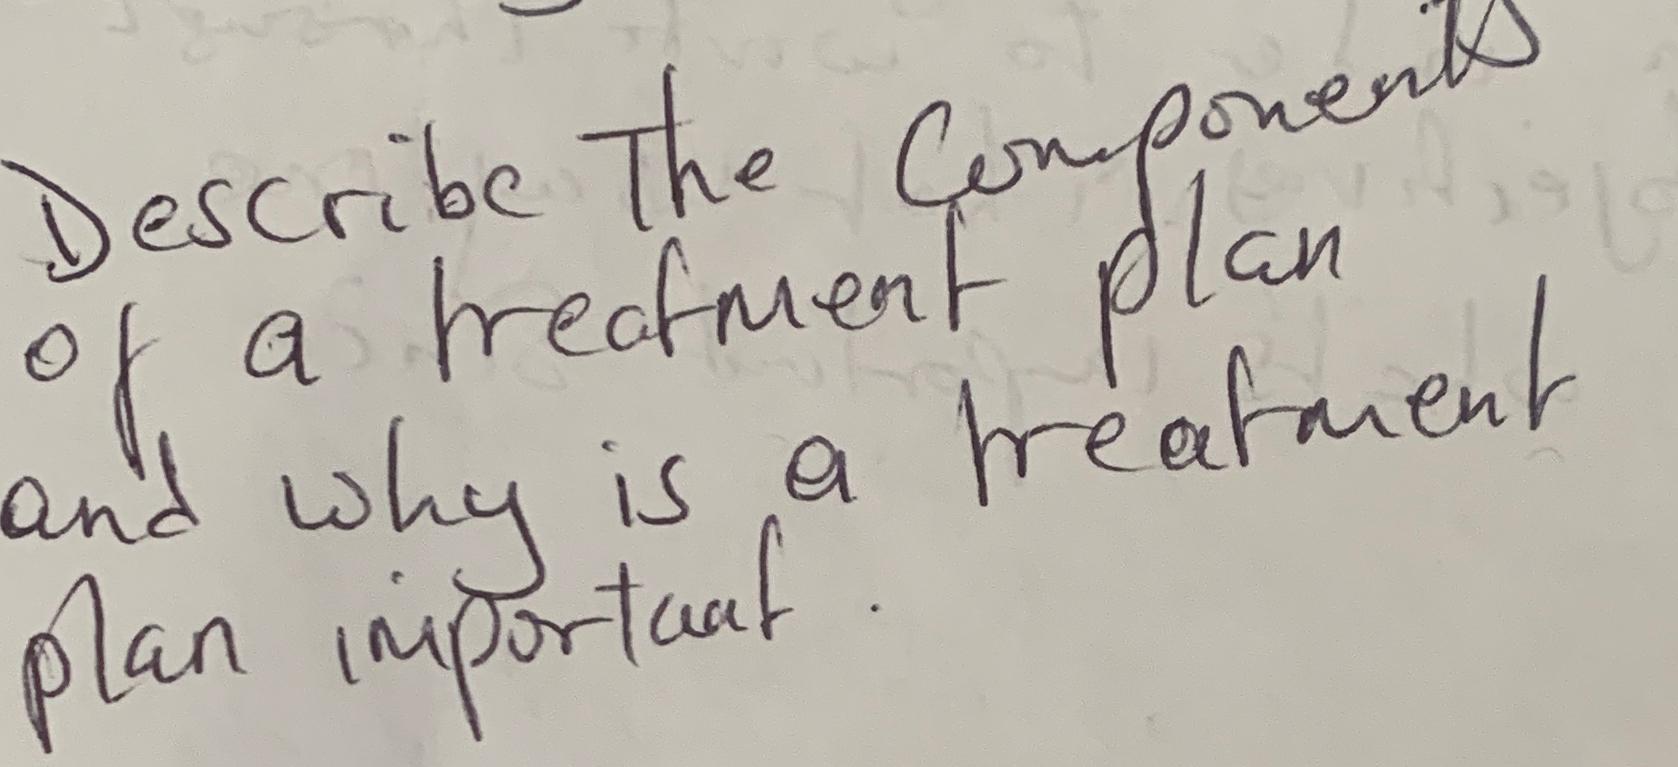 Describe The Components
of a treatment plan
and why is a treatment
plan important.